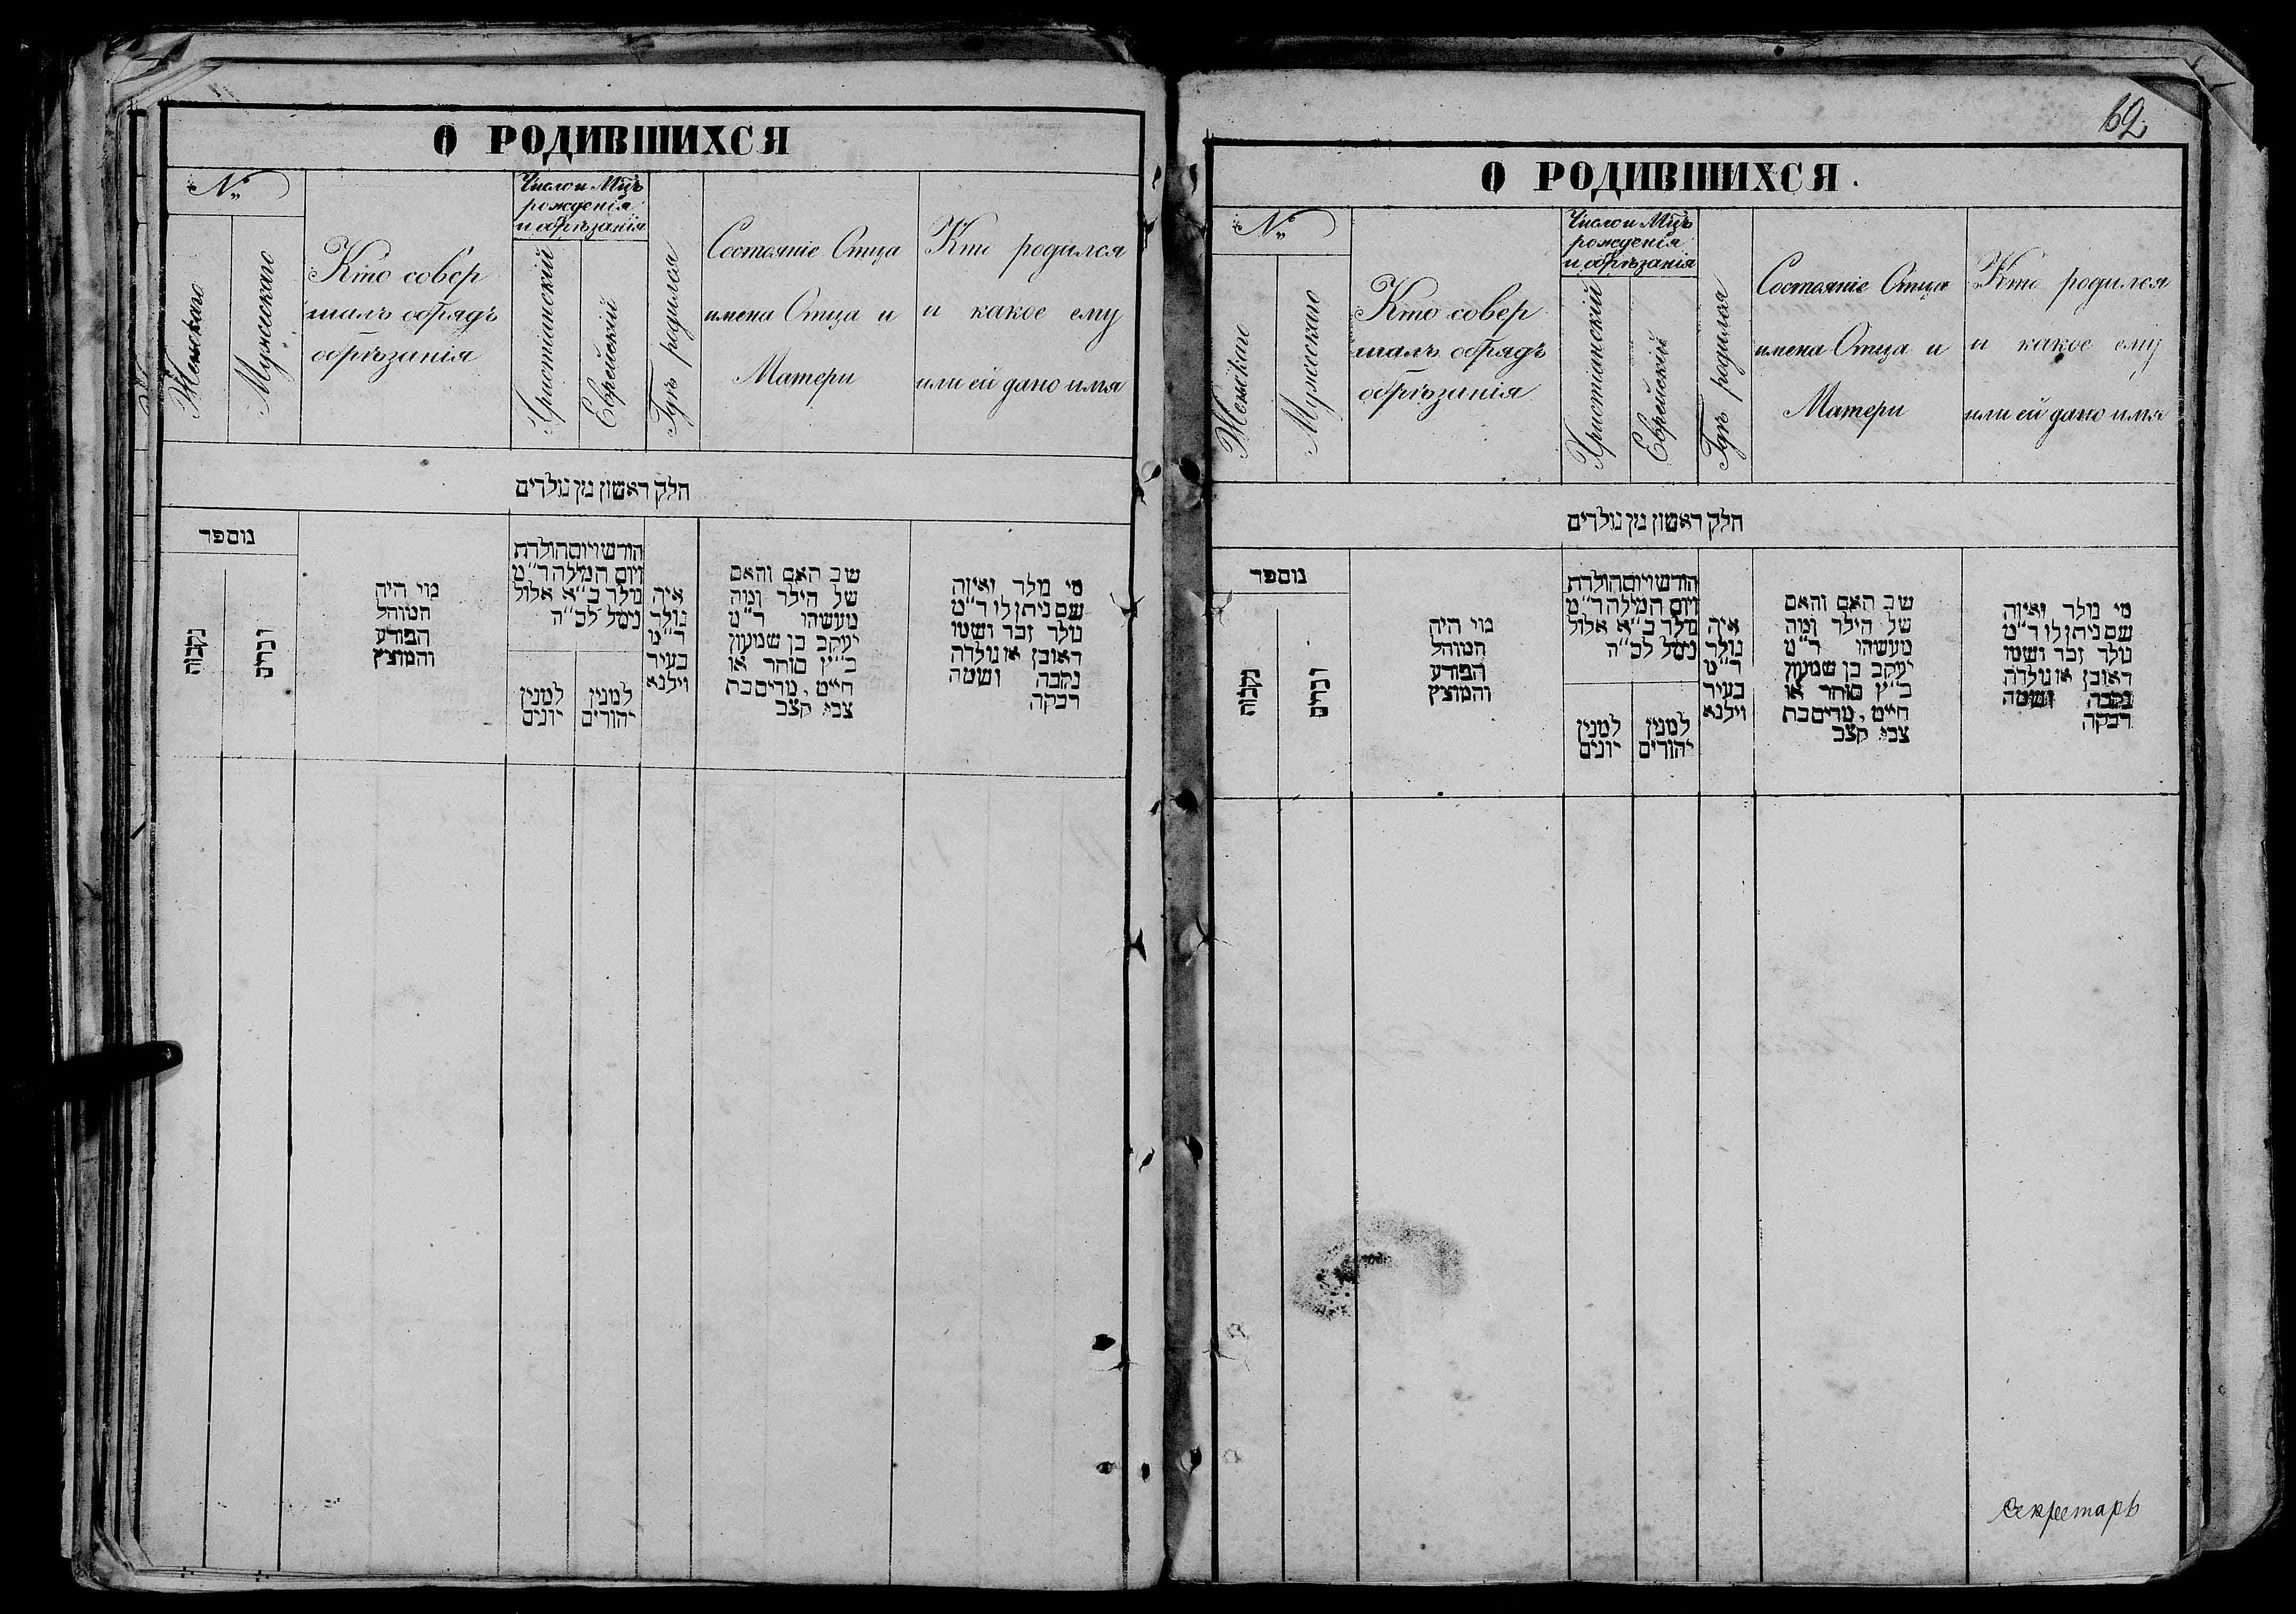 О РОДИВШИХСЯ
№
Женскаго
Мужескаго
Кто совер
шалъ обрядъ
обрѣзанія
Число и Мцъ
рожденія
и обрѣзанія
Христіанскій
Еврейскій
Гдѣ родился
Состояніе Отца
имена Отца и
Матери
Кто родился
и какое ему
или ей дано имя
חלק ראשון מן נולדים
מספר
נקבות
זכרים
מי היה
המוהל
הפורע
והמוצץ
חודש ויום הולדת
ויום המילה ד"מ
נולד ב"א אלול
נימל לכ"ה
למנין
יונים
למנין
יהודים
איה
נולד
ד"מ
בעיר
וילנא
שב האם והאם
של הילד ומה
מעשהו ד"מ
יעקב בן שמעון
כ"ץ סוחר או
חייט, מרים בת
צבי קצב
מי נולד ואיזה
שם ניתן לו ד"מ
נולד זכר ושמו
ראובן או נולדה
נקבה ושמה
רבקה
62
О РОДИВШИХСЯ.
№
Женскаго
Мужескаго
Кто совер
шалъ обрядъ
обрѣзанія
Число и Мцъ
рожденія
и обрѣзанія
Христіанскій
Еврейскій
Гдѣ родился
Состояніе Отца
имена Отца и
Матери
Кто родился
и какое ему
или ей дано имя
חלק ראשון מן נולדים
מספר
נקבות
זכרים
מי היה
המוהל
הפורע
והמוצץ
חודש ויום הולדת
ויום המילה ד"מ
נולד ב"א אלול
נימל לכ"ה
למנין
יונים
למנין
יהודים
איה
נולד
ד"מ
בעיר
וילנא
שב האם והאם
של הילד ומה
מעשהו ד"מ
יעקב בן שמעון
כ"ץ סוחר או
חייט, מרים בת
צבי קצב
מי נולד ואיזה
שם ניתן לו ד"מ
נולד זכר ושמו
ראובן או נולדה
נקבה ושמה
רבקה
Секретарь